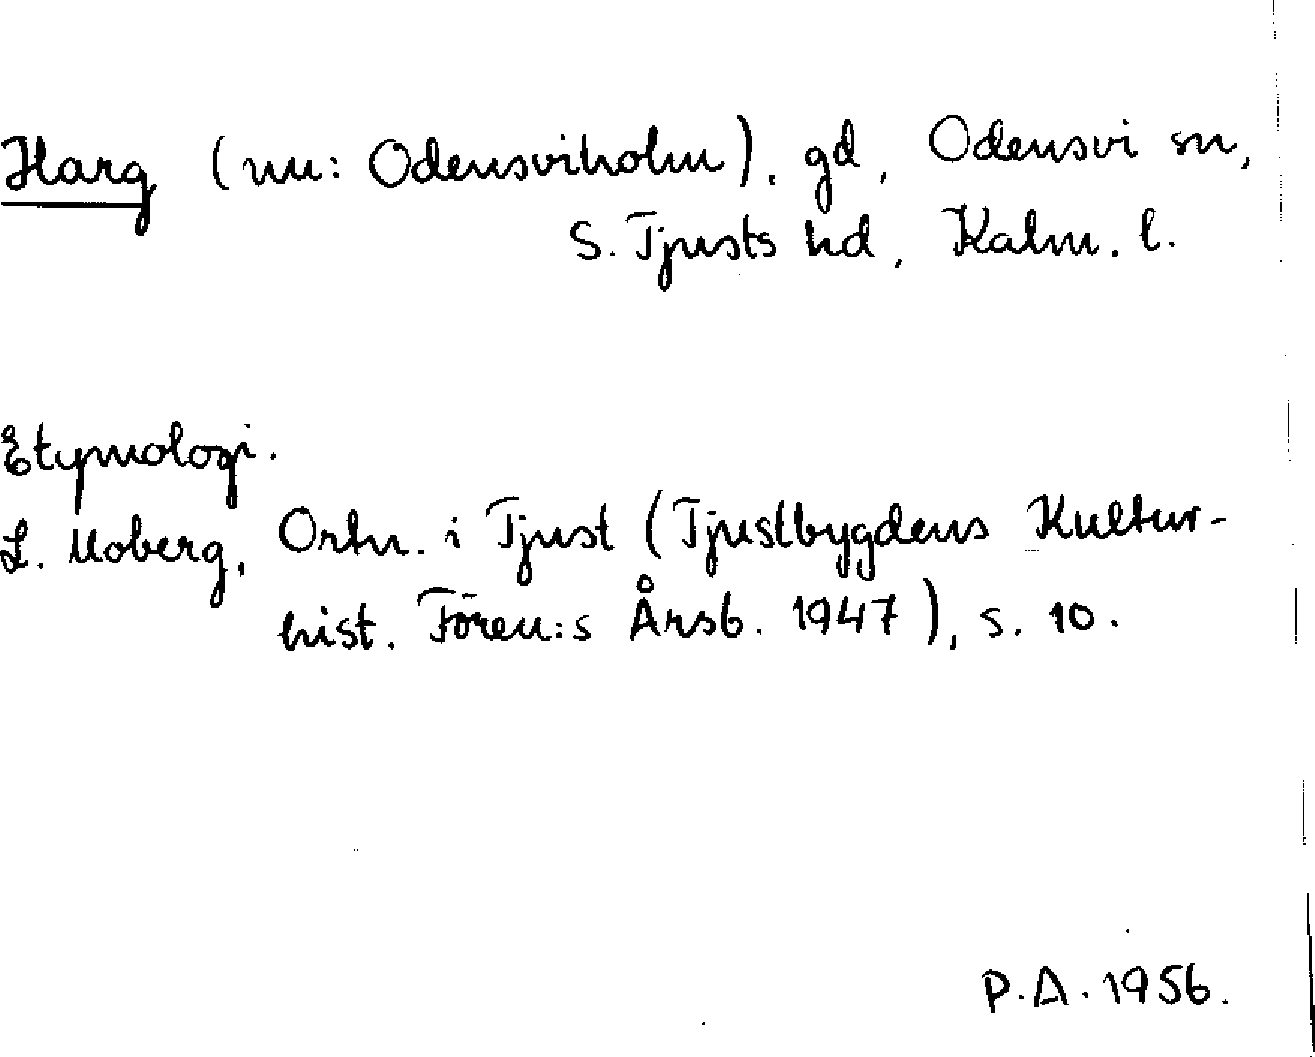 Harg (nu: Odensviholm), gd, Odensvi sn,
S. Tjusts hd, Kalm. l.
Etymologi.
L. Moberg, Ortn. i Tjust (Tjustbygdens Kultur-
hist. Fören:s Årsb. 1947), s. 10.
P.A. 1956.